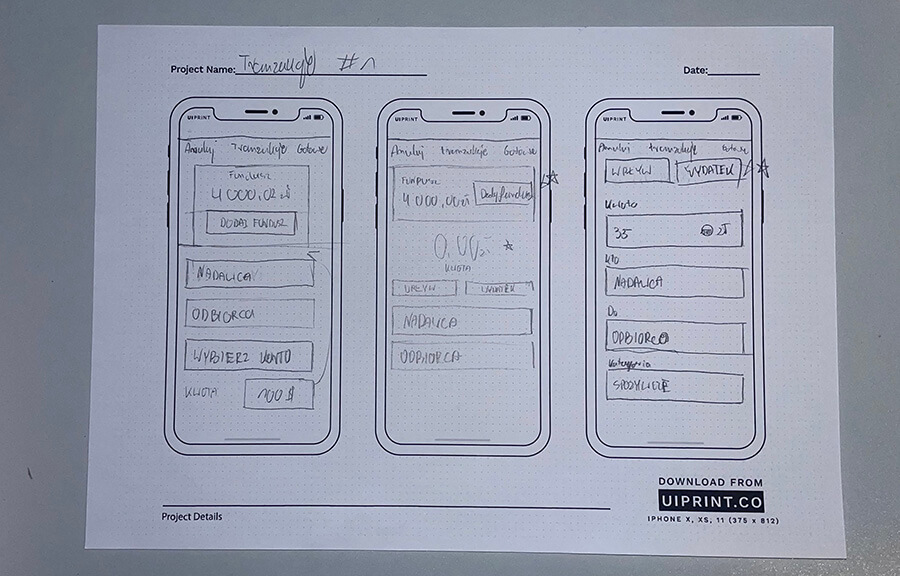 Project Name: Tranzakcje #1
Date:
UIPRINT
Anuluj Tranzakcje Gotowe
Fundusz
4 000,02 zł
DODAJ FUNDUSZ
NADAWCA
ODBIORCA
WYBIERZ KONTO
KWOTA 100 $
UIPRINT
Anuluj tranzakcje Gotowe
FUNDUSZ
4 000,00 zł
Dodaj fundusz
0,00 zł
KWOTA
WPŁYW WYDATEK
NADAWCA
ODBIORCA
UIPRINT
Anuluj tranzakcje Gotowe
WPŁYW WYDATEK
Kwota
35 zł
Kto
NADAWCA
Do
ODBIORCA
Kategoria
Project Details
DOWNLOAD FROM
UIPRINT.CO
IPHONE X, XS, 11 (375 x 812)